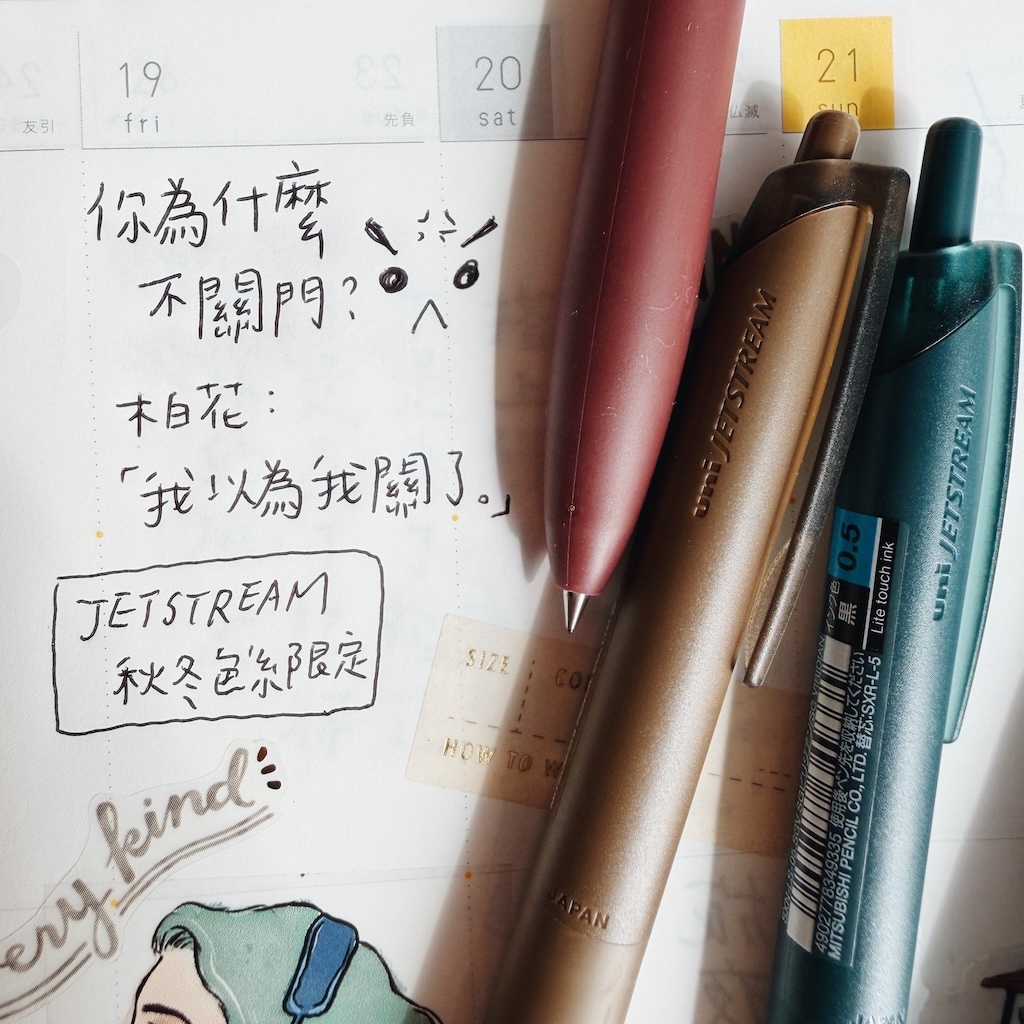 19
fri
友引
先負
20
sat
仏滅
21
sun
你為什麼
不關門?
柏花:
「我以為我關了。」
JETSTREAM
秋冬色系限定
SIZE
HOW TO
kind
uni JETSTREAM
JAPAN
uni JETSTREAM
0.5
インク色
黒
Lite touch ink
使用後ペン先を収納してください
替芯:SXR-L-5
4902778349335
MITSUBISHI PENCIL CO., LTD.